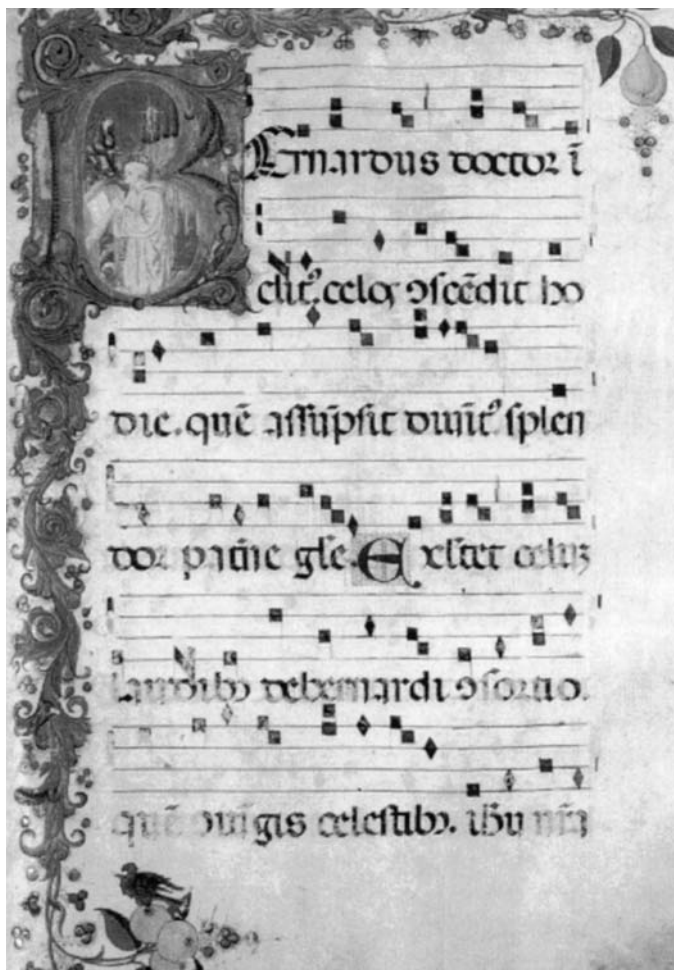 BERnardus doctor ĩ
clitꝰ. celoꝝ ꝯscẽdit ho
die. quẽ assũpsit diuitꝰ splen
dor patrie glẽ. Exĩtet celuʒ
laudibꝰ de bernardi ꝯsortio.
quẽ ꝯiũgis celestibꝰ. ihũ